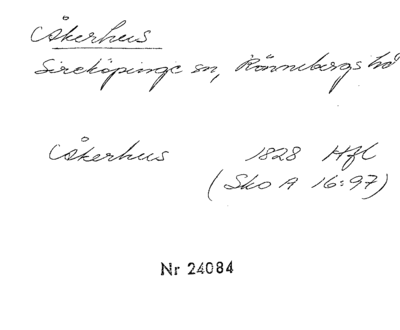 Åkerhus
Sireköpinge sn, Rönnebergs hd
Åkerhus 1828 Hfl
(Sko A 16:97)
Nr 24084